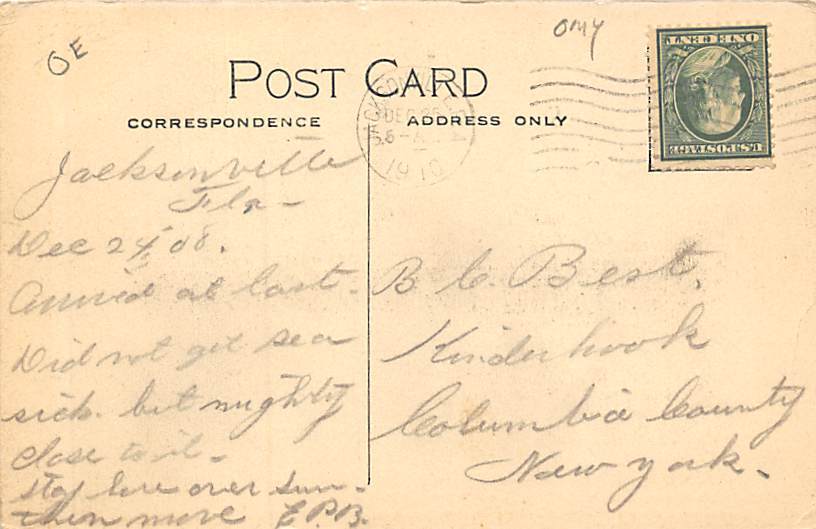 OE
OMY
POST CARD
CORRESPONDENCE
ADDRESS ONLY
JACKSONVILLE
DEC 25
6-A
1910
U.S. POSTAGE
ONE CENT
Jacksonville
Fla -
Dec 24, 08.
Arrived at last.
Did not get sea
sick. but mighty
close to it -
stay here over sun-
then move E.P.B.
B C. Best,
Kinderhook
Columbia County
New York.